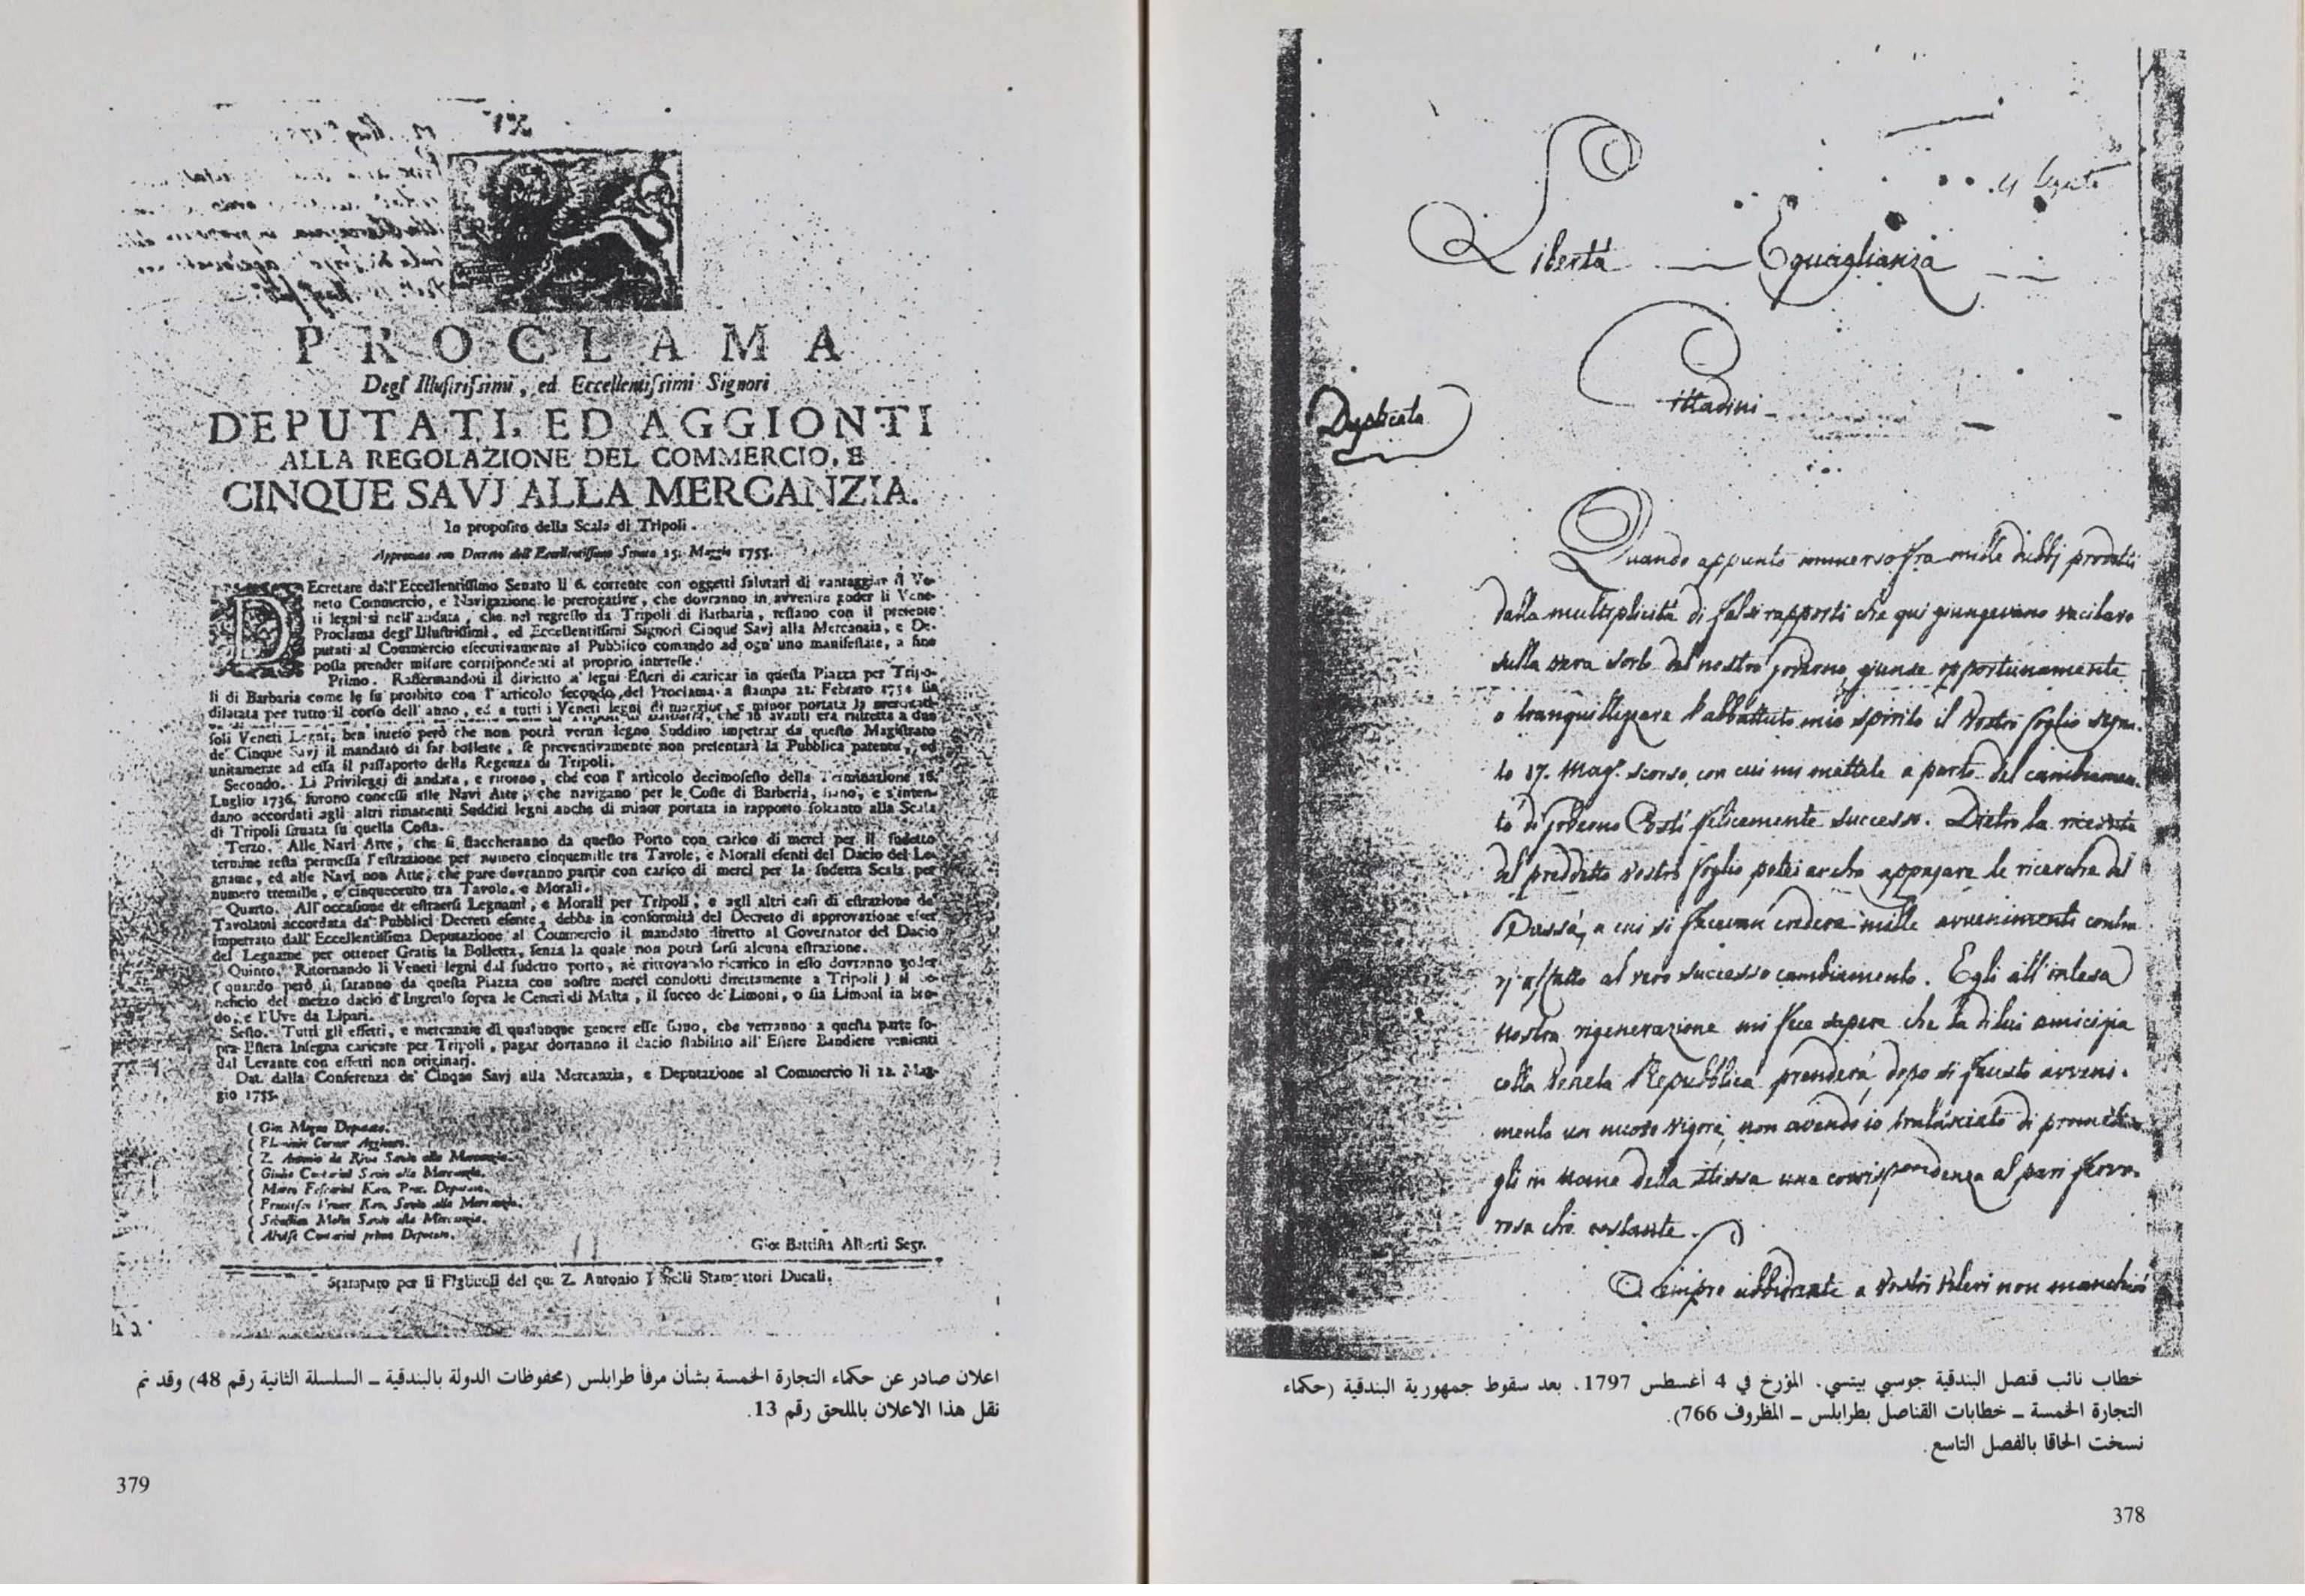 Libertà Eguaglianza
Cittadini
Duplicata
Quando appunto immerso fra mille dubbj prodotti
dalla multiplicità di falsi rapporti che qui giungevano vacilavo
sulla vera sorte del nostro governo, giunse opportunamente
a tranquillizzare l'abbattuto mio spirito il vostro foglio segna-
to 17. Mag.º scorso, con cui mi mettete a parte del cambiamen-
to di governo Costì felicemente successo. Dietro la ricevuta
del preddetto vostro foglio potei anche appagare le ricerche del
Bassà, a cui si facevan credere mille avvenimenti contra-
rj affatto al vero successo cambiamento. Egli all'intesa
nostra rigenerazione mi fece sapere che la di lui amicizia
colla Veneta Repubblica prenderà dopo sì fausto avveni-
mento un nuovo vigore, non avendo io tralasciato di
gli in nome della stessa una corrispondenza al pari fervo-
rosa che costante.
Sempre ubbidiente a vostri voleri non mancherò
خطاب نائب قنصل البندقية جوسبي بيتسي. المؤرخ في 4 أغسطس 1797. بعد سقوط جمهورية البندقية (حكماء
التجارة الخمسة – خطابات القناصل بطرابلس – المظروف 766).
نسخت الحاقا بالفصل التاسع.
378
PROCLAMA
Degl' Illustrissimi, ed Eccellentissimi Signori
DEPUTATI, ED AGGIONTI
ALLA REGOLAZIONE DEL COMMERCIO, E
CINQUE SAVJ ALLA MERCANZIA.
In proposito della Scala di Tripoli.
Approvato con Decreto dell' Eccellentissimo Senato 15. Maggio 1755.
DEcretare dall'Eccellentissimo Senato li 6. corrente con oggetti salutari di vantaggiar il Ve-
neto Commercio, e Navigazione le prerogative, che dovranno in avvenire goder li Vene-
ti legni sì nell'andata, che nel regresso da Tripoli di Barbaria, restano con il presente
Proclama degl'Illustrissimi, ed Eccellentissimi Signori Cinque Savj alla Mercanzia, e De-
putati al Commercio esecutivamente al Pubblico comando ad ogn'uno manifestate, a fine
possa prender misure corrispondenti al proprio interesse.
Primo. Raffermandosi il divietto a' legni Esteri di caricar in questa Piazza per Tripo-
li di Barbaria come le fu proibito con l'articolo secondo del Proclama a stampa 21. Febraro 1754 sia
dilatata per tutto il corso dell'anno, ed a tutti i Veneti legni di maggior, e minor portata la prerogati-
che in avanti era ristretta a due
soli Veneti Legni, ben inteso però che non potrà verun legno Suddito impetrar da questo Magistrato
de' Cinque Savj il mandato di far bollette, se preventivamente non presentarà la Pubblica patente, ed
unitamente ad essa il passaporto della Regenza di Tripoli.
Secondo. Li Privileggi di andata, e ritorno, che con l'articolo decimosesto della Terminazione 16.
Luglio 1736. furono concessi alle Navi Atte, che navigano per le Coste di Barberia, siano, e s'inten-
dano accordati agli altri rimanenti Sudditi legni anche di minor portata in rapporto soltanto alla Scala
di Tripoli situata su quella Costa.
Terzo. Alle Navi Atte, che si staccheranno da questo Porto con carico di merci per il sudetto
termine resta permessa l'estrazione per numero cinquemille tra Tavole, e Morali esenti del Dacio del Le-
gname, ed alle Navi non Atte, che pure dovranno partir con carico di merci per la sudetta Scala per
numero tremille, e cinquecento tra Tavole, e Morali.
Quarto. All'occasione de estraersi Legnami, e Morali per Tripoli, e agli altri casi di estrazione de'
Tavolami accordata da' Pubblici Decreti esente, debba in conformità del Decreto di approvazione esser
impetrato dall'Eccellentissima Deputazione al Commercio il mandato diretto al Governator del Dacio
del Legname per ottener Gratis la Bolletta, senza la quale non potrà farsi alcuna estrazione.
Quinto. Ritornando li Veneti legni dal sudetto porto, nè ritrovando ricarico in esso dovranno goder
(quando però si saranno da questa Piazza con nostre merci condotti direttamente a Tripoli) il be-
neficio del mezzo dacio d'Ingresso sopra le Ceneri di Malta, il succo de' Limoni, o sia Limoni in bro-
do, e l'Uve da Lipari.
Sesto. Tutti gli effetti, e mercanzie di qualunque genere esse siano, che verranno a questa parte so-
pra Estera Insegna caricate per Tripoli, pagar dovranno il dacio stabilito all'Estere Bandiere venienti
dal Levante con effetti non originarj.
Dat. dalla Conferenza de' Cinque Savj alla Mercanzia, e Deputazione al Commercio li 12. Mag-
gio 1755.
( Gio: Deputato.
( Flaminio Corner Aggionto.
( Z. Antonio da Riva Savio alla Mercanzia.
( Giulio Contarini Savio alla Mercanzia.
( Marco Foscarini Kav. Proc. Deputato.
( Francesco Kav. Savio alla Mercanzia.
( Sebastian Molin Savio alla Mercanzia.
( Alvise Contarini primo Deputato.
Gio: Battista Alberti Segr.
Stampato per li Figliuoli del qu: Z. Antonio Pinelli Stampatori Ducali.
اعلان صادر عن حكماء التجارة الخمسة بشأن مرفأ طرابلس (محفوظات الدولة بالبندقية – السلسلة الثانية رقم 48) وقد تم
نقل هذا الاعلان بالملحق رقم 13.
379